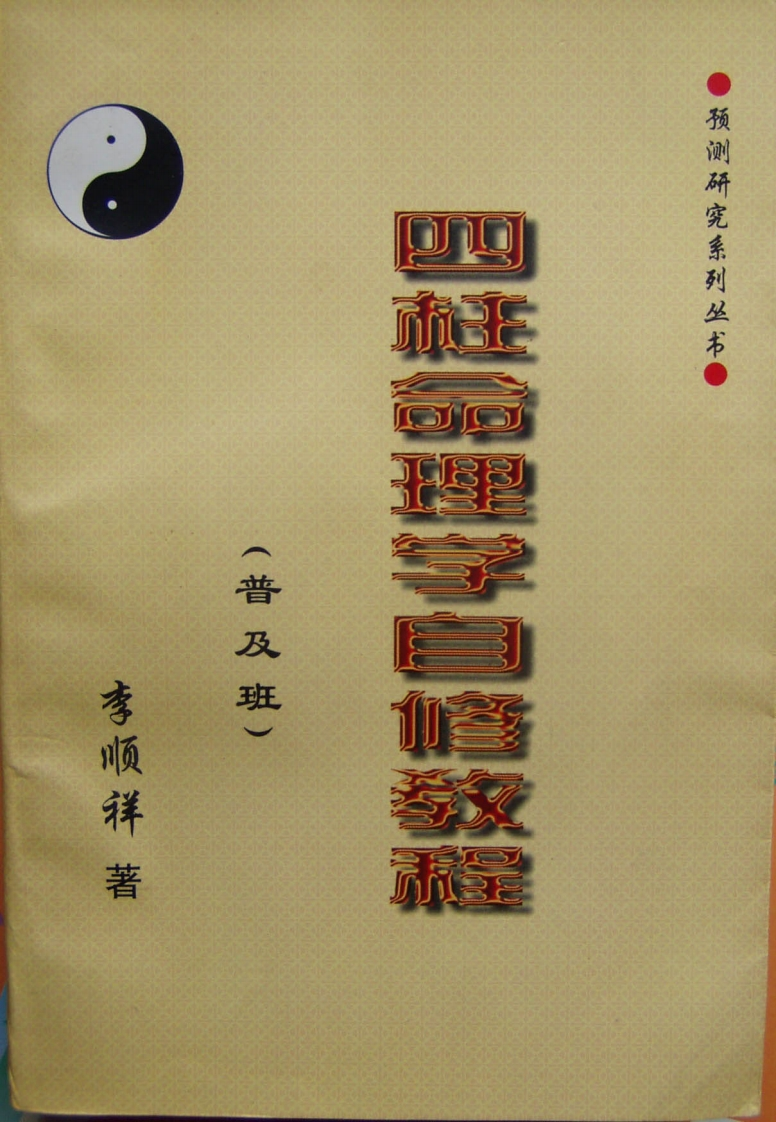 ●预测研究系列丛书●
四柱命理学自修教程
（普及班）
李顺祥 著